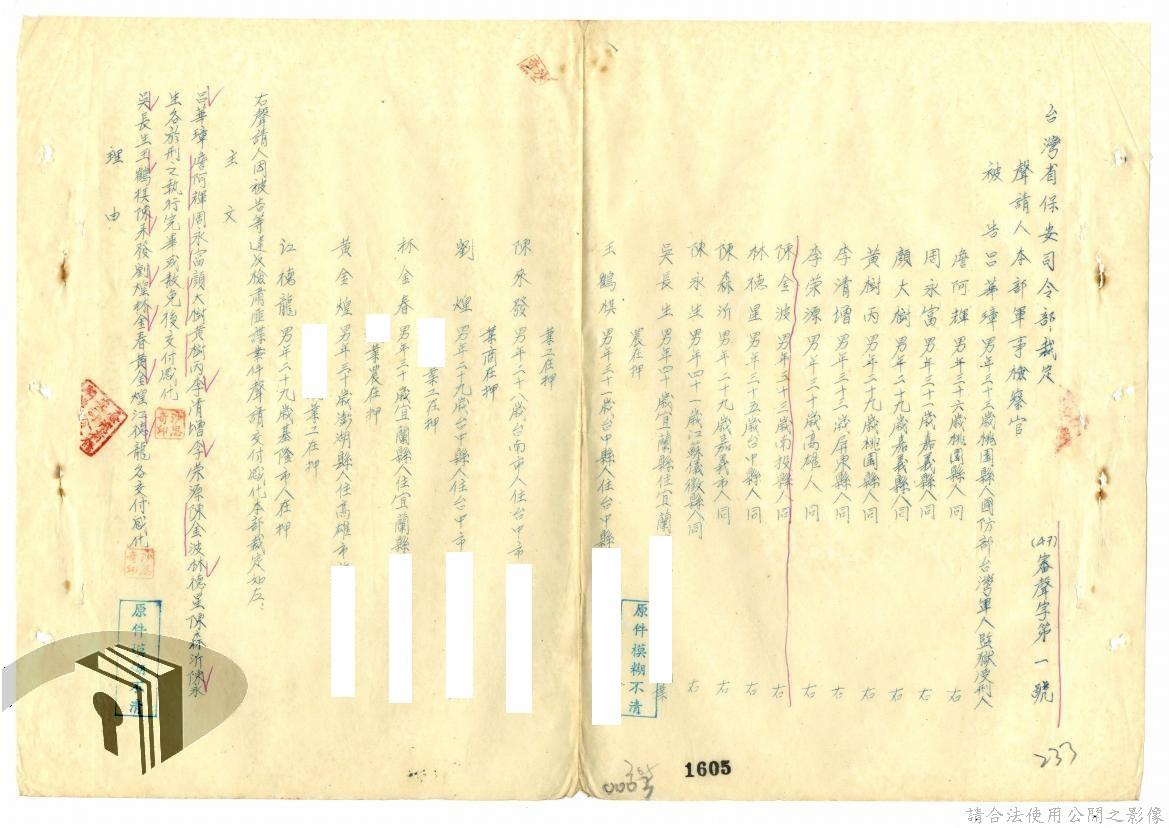 台灣省保安司令部裁定
(47)審聲字第一號
聲請人本部軍事檢察官
被告呂華璋男年三十三歲桃園縣人國防部台灣軍人監獄受刑人
詹阿輝男年三十六歲桃園縣人同右
周永富男年三十一歲嘉義縣人同右
顏大樹男年二十九歲嘉義縣人同右
黃樹丙男年二十九歲桃園縣人同右
李清增男年三十二歲屏東縣人同右
李榮源男年三十歲高雄人同右
陳金波男年五十三歲南投縣人同右
林德星男年三十五歲台中縣人同右
陳森沂男年二十九歲嘉義市人同右
陳永生男年四十一歲江蘇儀徵縣人同右
吳長生男年四十歲宜蘭縣住宜蘭 業
農在押
王鶴棋男年三十一歲台中縣人住台中縣
業工在押
陳來發男年二十八歲台南市人住台中市
業商在押
劉煌男年二十九歲台中縣人住台中市
業工在押
林金春男年三十歲宜蘭縣人住宜蘭縣
業農在押
黃金煌男年三十歲澎湖縣人住高雄市
業工在押
江德龍男年二十九歲基隆市人在押
右聲請人因被告等違反檢肅匪諜案件聲請交付感化本部裁定如左：
主文
呂華璋詹阿輝周永富顏大樹黃樹丙李清增李榮源陳金波林德星陳森沂陳永
生各於刑之執行完畢或赦免後交付感化
吳長生王鶴棋陳來發劉煌林金春黃金煌江德龍各交付感化
理由
原件模糊不清
原件模糊不清
1605
233
請合法使用公開之影像